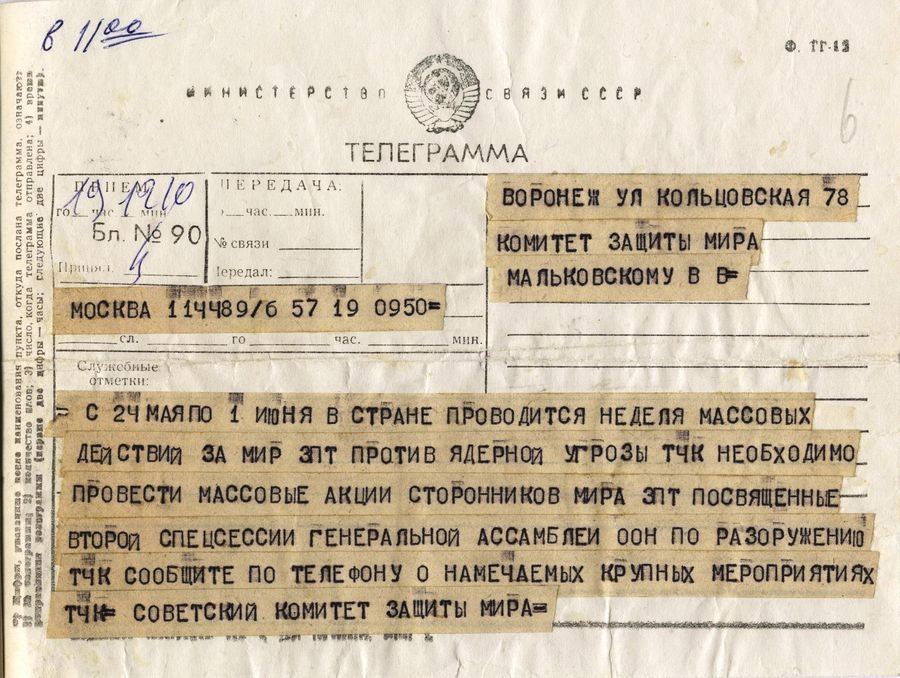 в 11 00
Ф. ТГ-13
6
МИНИСТЕРСТВО СВЯЗИ СССР
ТЕЛЕГРАММА
ПРИЕМ
19 12 10
го час. мин.
Бл. № 90
Принял
ПЕРЕДАЧА:
час. мин.
№ связи
Передал:
ВОРОНЕЖ УЛ КОЛЬЦОВСКАЯ 78
КОМИТЕТ ЗАЩИТЫ МИРА
МАЛЬКОВСКОМУ В В=
МОСКВА 114489/6 57 19 0950=
сл. го час. мин.
Служебные
отметки:
= С 24 МАЯ ПО 1 ИЮНЯ В СТРАНЕ ПРОВОДИТСЯ НЕДЕЛЯ МАССОВЫХ
ДЕЙСТВИЙ ЗА МИР ЗПТ ПРОТИВ ЯДЕРНОЙ УГРОЗЫ ТЧК НЕОБХОДИМО
ПРОВЕСТИ МАССОВЫЕ АКЦИИ СТОРОННИКОВ МИРА ЗПТ ПОСВЯЩЕННЫЕ
ВТОРОЙ СПЕЦСЕССИИ ГЕНЕРАЛЬНОЙ АССАМБЛЕИ ООН ПО РАЗОРУЖЕНИЮ
ТЧК СООБЩИТЕ ПО ТЕЛЕФОНУ О НАМЕЧАЕМЫХ КРУПНЫХ МЕРОПРИЯТИЯХ
ТЧК= СОВЕТСКИЙ КОМИТЕТ ЗАЩИТЫ МИРА=
наименования пункта, откуда послана телеграмма, означают:
количество слов; 3) число, когда телеграмма отправлена; 4) время
две цифры — часы; следующие две цифры — минуты).